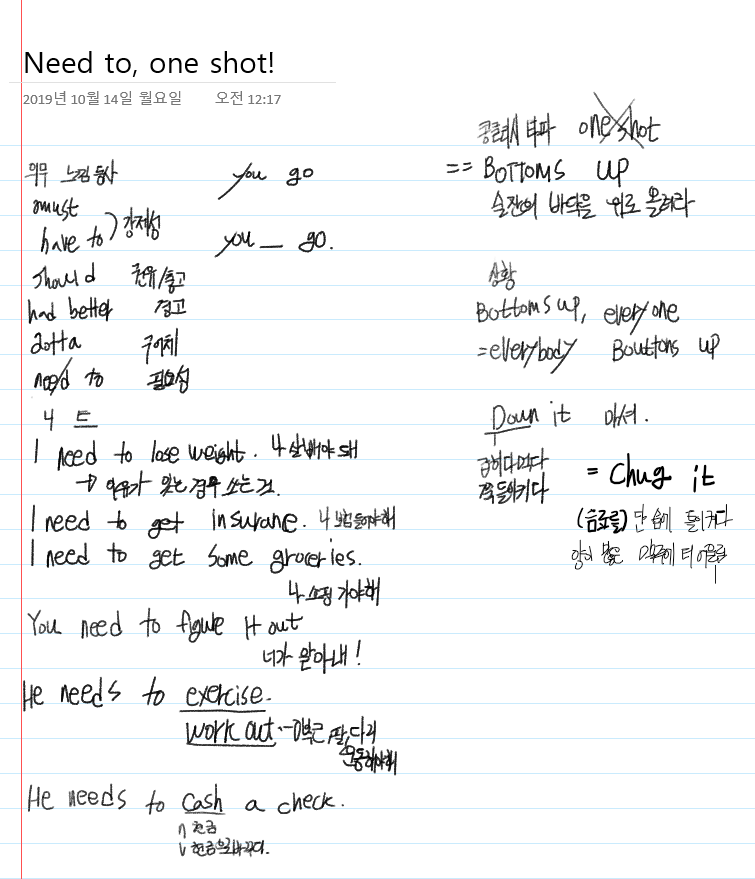 Need to, one shot!
2019년 10월 14일 월요일 오전 12:17
의무 느낌 동사
must
have to ) 강제성
should 권유/충고
had better 경고
gotta 구어체
need to 필요성
you go
you _ go.
니 드
I need to lose weight. 나 살빼야 돼
→ 이유가 있는 경우 쓰는 것.
I need to get insurane. 나 보험들어야해
I need to get some groceries.
나 쇼핑 가야해
You need to figure it out
너가 알아내!
He needs to exercise.
work out 팔,다리
운동해야해
He needs to cash a check.
n 현금
v 현금으로바꾸다.
콩글리시 타파 one shot
== BOTTOMS UP
술잔의 바닥을 위로 올려라
상황
Bottoms up, everyone
= everybody Bouttons up
Down it 마셔.
급히다먹다
쭉들이키다
= Chug it
(음료를) 단숨에 들이켜다
양이 많은